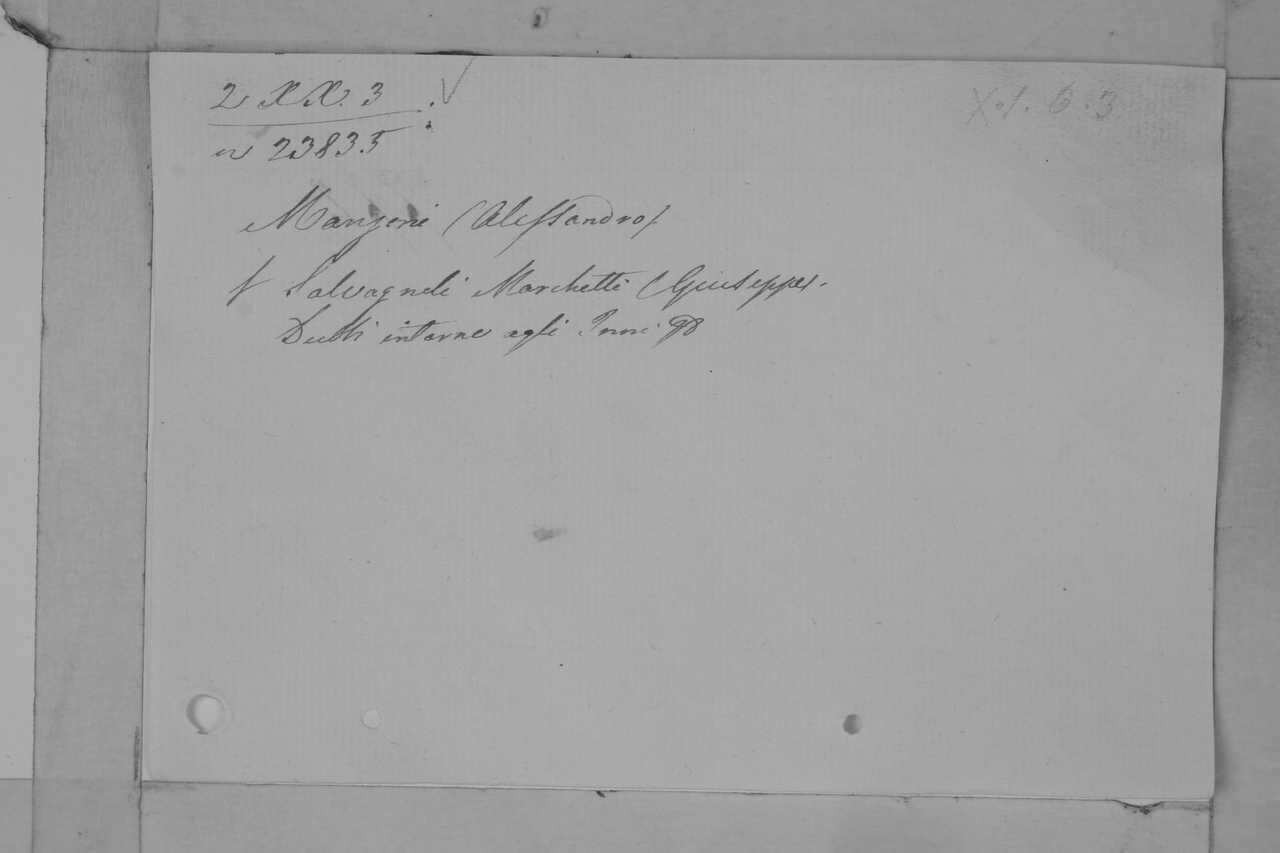 2 XX. 3
X. 1. 6. 3
n 23835
Manzoni (Alessandro)
f Salvagnoli Marchetti (Giuseppe).
Dubbi intorno agli Inni